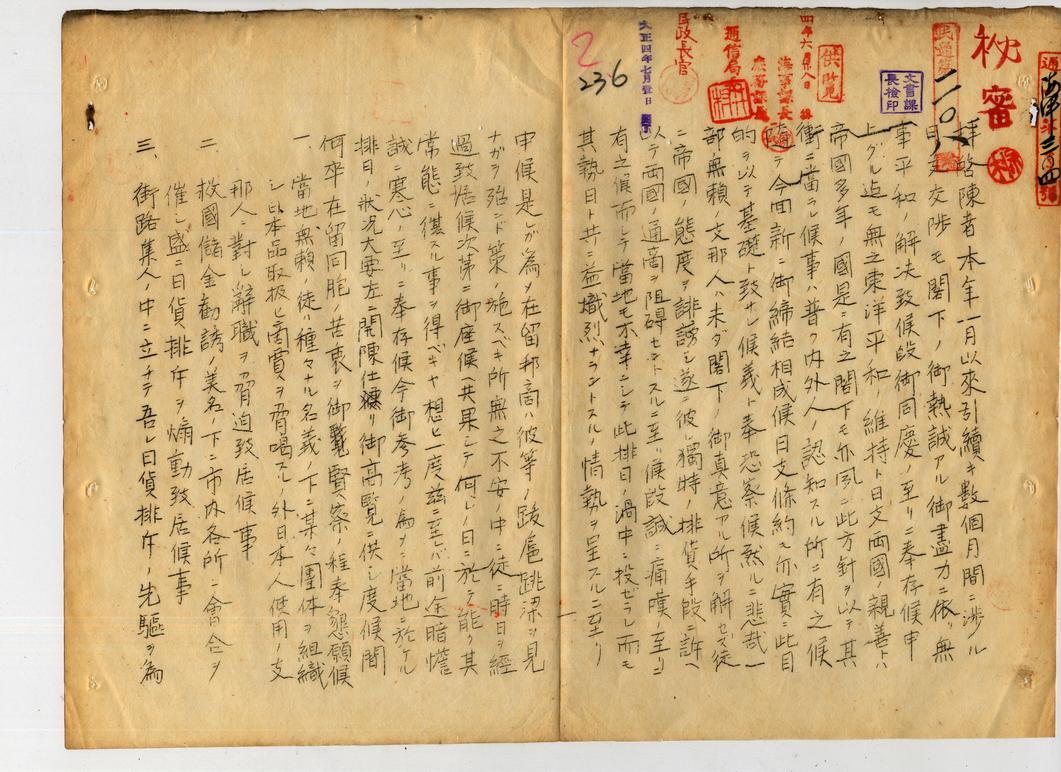 秘
審
供覧
文書課
長検印
海事課長
通信局
民政長官
大正四年七月壹日
2
236
拝啓陳者本年一月以來引續キ數個月間ニ渉ル
日支交渉モ閣下ノ御熱誠アル御盡力ニ依リ無
事平和ノ解決致候段御同慶ノ至リニ奉存候申
上グル迄モ無之東洋平和ノ維持ト日支両國ノ親善トハ
帝國多年ノ國是ニ有之閣下モ亦夙ニ此方針ヲ以テ其
衝ニ當ラレ候事ハ普ク内外人ノ認知スル所ニ有之候
隨テ今回新ニ御締結相成候日支條約モ亦實ニ此目
的ヲ以テ基礎ト致サレ候義ト奉恐察候然ルニ悲哉一
部無頼ノ支那人ハ未ダ閣下ノ御真意アル所ヲ解セズ徒
ニ帝國ノ態度ヲ誹謗シ遂ニ彼獨特ノ排貨手段ニ訴ヘ
以テ両國ノ通商ヲ阻碍セントスルニ至リ候段誠ニ痛嘆ノ至リニ
有之候而シテ當地モ不幸ニシテ此排日ノ渦中ニ投ゼラレ而モ
其執日ト共ニ益熾烈ナラントスルノ情勢ヲ呈スルニ至リ
申候是レガ為メ在留邦商ハ彼等ノ跋扈跳梁ヲ見
ナガラ殆ンド策ノ施スベキ所無之不安ノ中ニ徒ニ時日ヲ經
過致居候次第ニ御座候ヘ共果シテ何レノ日ニ於テ能ク其
常態ニ復スル事ヲ得ベキヤ想ヒ一度茲ニ至レバ前途暗憺
誠ニ寒心ノ至リニ奉存候今御参考ノ為メニ當地ニ於ケル
排日ノ狀況大要左ニ開陳仕リ御高覧ニ供シ度候間
何卒在留同胞ノ苦衷ヲ御賢察ノ程奉懇願候
一、當地無頼ノ徒種々ナル名義ノ下ニ某々團体ヲ組織
シ日本品取扱ヒ商賈ヲ脅喝スルノ外日本人使用ノ支
那人ニ對シ辭職ヲ脅迫致居候事
二、救國儲金勸誘ノ美名ノ下ニ市内各所ニ會合ヲ
催シ盛ニ日貨排斥ヲ煽動致居候事
三、街路集人ノ中ニ立チテ吾レ日貨排斥ノ先驅ヲ為